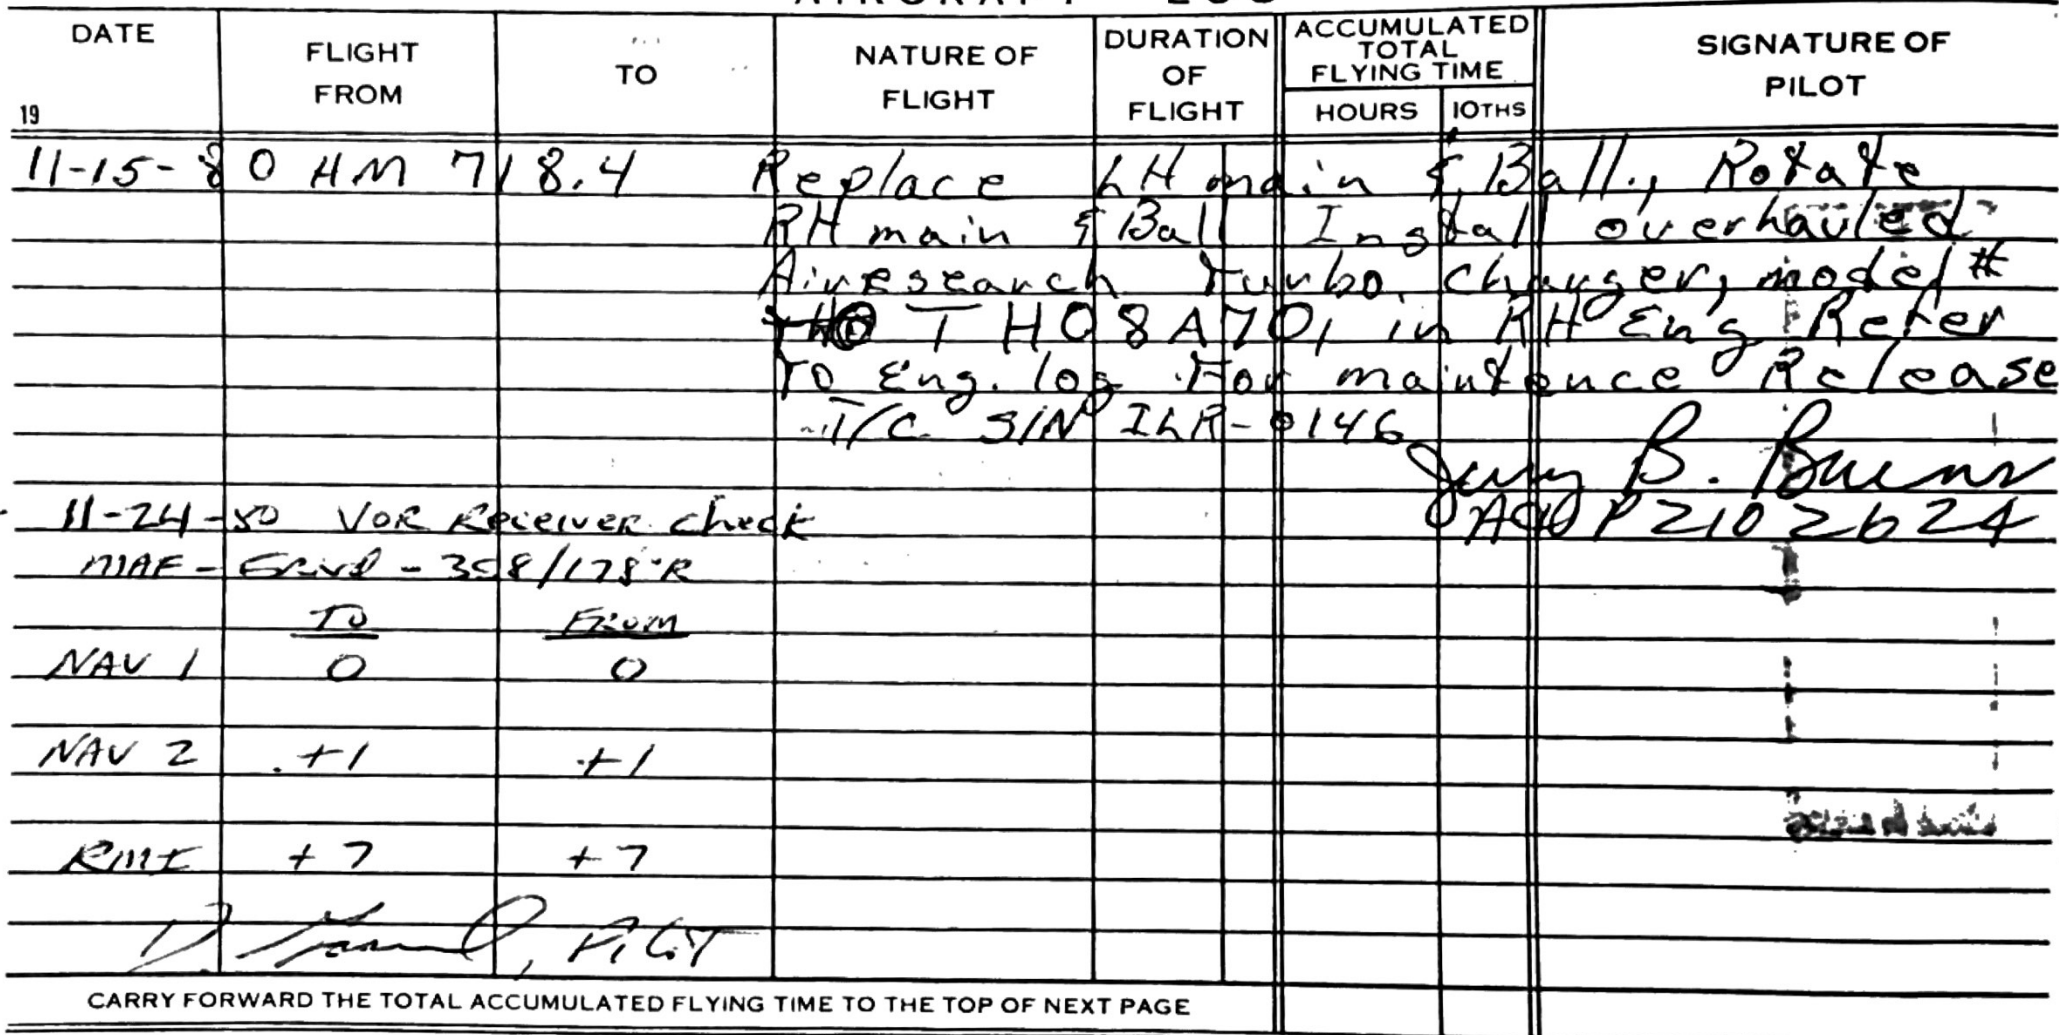 AIRCRAFT LOG
DATE
FLIGHT
FROM
TO
NATURE OF
FLIGHT
DURATION
OF
FLIGHT
ACCUMULATED
TOTAL
FLYING TIME
HOURS
10THS
SIGNATURE OF
PILOT
19
11-15-80 HM 718.4 Replace LH main & Ball., Rotate
RH main & Ball Install overhauled
Airesearch Turbo charger, model #
THO8A70, in RH Eng Refer
TO Eng. log For maintence Release
T/C S/N ILR-0146
B.
P2102624
11-24-80 VOR Receiver check
Grnd - 358/178°R
TO From
NAV 1 0 0
NAV 2 +1 +1
RMI +7 +7
, PILOT
CARRY FORWARD THE TOTAL ACCUMULATED FLYING TIME TO THE TOP OF NEXT PAGE